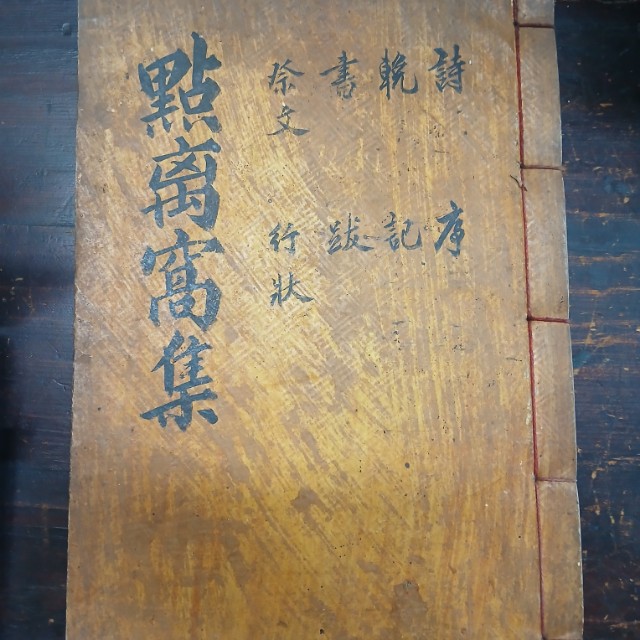 詩 序
輓 記
書 跋
祭文 行狀
點离窩集